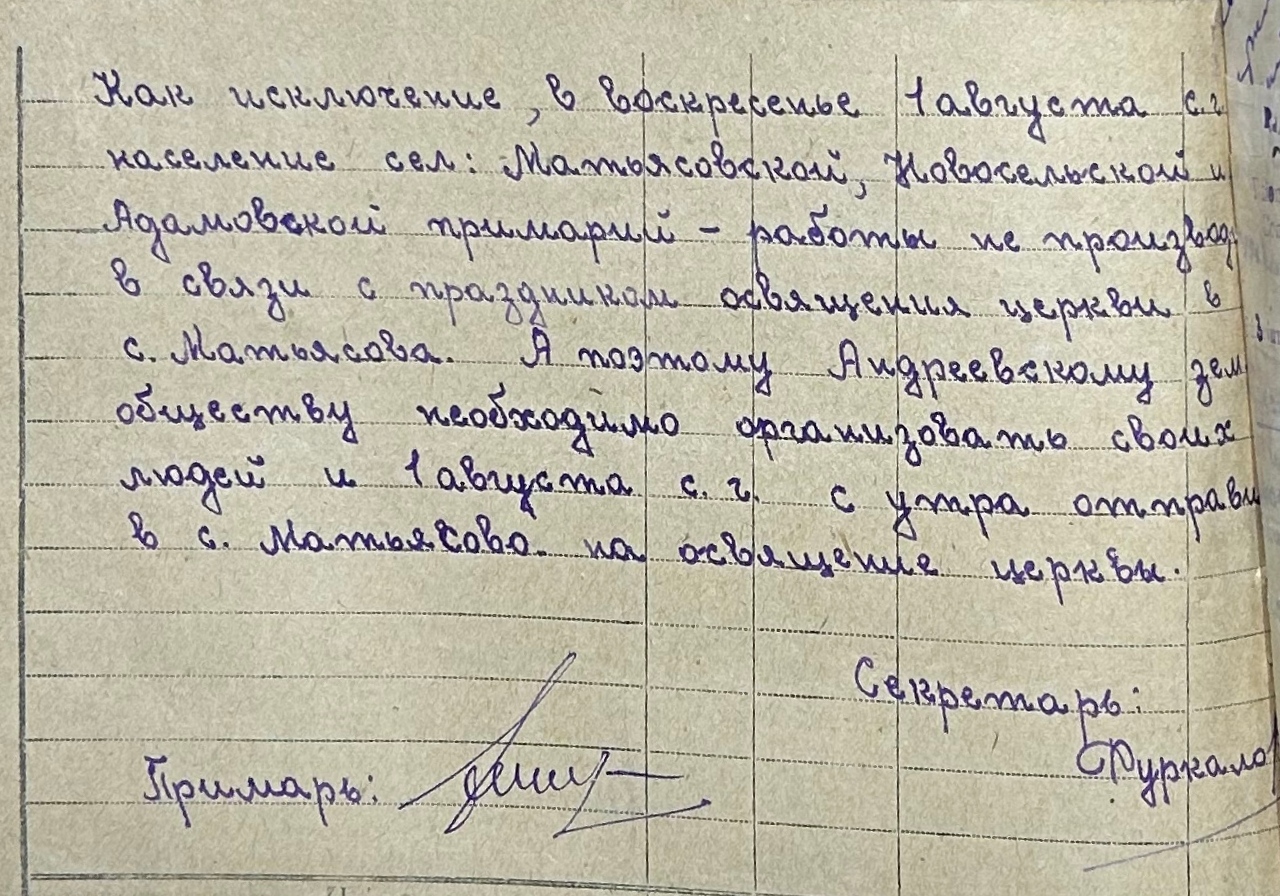 Как исключение, в воскресенье 1 августа с.г.
население сел: Матьясовской, Новосельской и
Адамовской примарий - работы не производ
в связи с праздником освящения церкви в
с. Матьясова. А поэтому Андреевскому зем
обществу необходимо организовать своих
людей и 1 августа с.г. с утра отправи
в с. Матьясово на освящение церквы.
Секретарь:
Примарь:
Фуркало